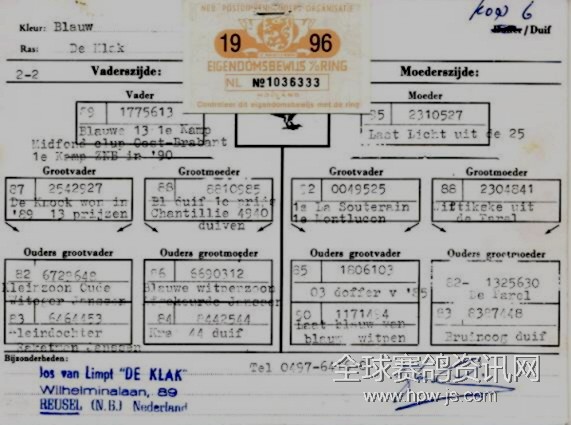 Kleur: Blauw
Ras: De Klak
2-2
NED. POSTDUIVENHOUDERS ORGANISATIE
1996
EIGENDOMSBEWIJS V/D RING
NL Nº1036333
HOLLAND
Controleer dit eigendomsbewijs met de ring
KOP 6
/ Duif
Vaderszijde:
Moederszijde:
Vader
89 1775613
Blauwe 13 1e Kamp
Midfond club Oost-Brabant
1e Kamp ZNB in '90
Moeder
85 2310527
Last Licht uit de 25
Grootvader
87 2542927
De Knock won in
'89 13 prijzen
Grootmoeder
88 8810985
Bl duif 1e prijs
Chantillie 4940
duiven
Grootvader
0049525
1e La Souterain
1e Montlucon
Grootmoeder
88 2304841
uit
de Farel
Ouders grootvader
82
Kleinzoon Oude
Witoger Janssen
83 6464453
Kleindochter
Janssen
Ouders grootmoeder
86 6690312
Blauwe witpenzoon
Janssen
84 8442544
44 duif
Ouders grootvader
85 1806103
03 doffer v '85
Last blauw van
blauw witpen
Ouders grootmoeder
82- 1325630
De Farel
83 8387448
Bruinoog duif
Bijzonderheden:
Jos van Limpt "DE KLAK"
Wilhelminalaan, 89
REUSEL (N.B.) Nederland
Tel 0497-64
全球赛鸽资讯网
www.hpw-js.com